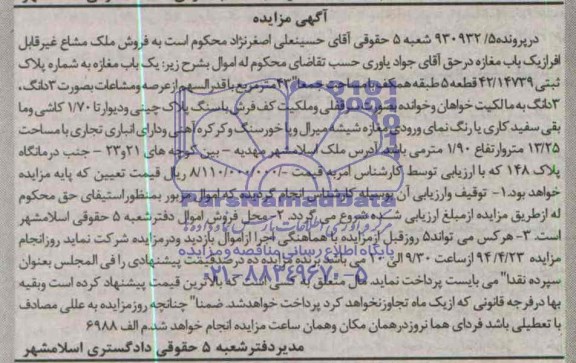 آگهی مزایده
درپرونده۵/ ۹۳۰۹۳۲ شعبه ۵ حقوقی آقای حسینعلی اصغرنژاد محکوم است به فروش ملک مشاع غیرقابل
افراز یک باب مغازه درحق آقای جواد یاوری حسب تقاضای محکوم له اموال بشرح زیر: یک باب مغازه به شماره پلاک
ثبتی ۴۲/۱۴۷۳۹ قطعه ۵ طبقه همکف به مساحت جمعا" ۴۳ مترمربع باقدرالسهم ازعرصه ومشاعات بصورت ۳دانگ،
۳دانگ به مالکیت خواهان وخوانده به صورت سرقفلی وملکیت کف فرش باسنگ پلاک چینی ودیوارتا ۱/۷۰ کاشی وما
بقی سفید کاری یا رنگ نمای ورودی مغازه شیشه میرال و پا خورسنگ وکرکره آهنی ودارای انباری تجاری بامساحت
۱۳/۲۵ متروارتفاع ۱/۹۰ مترمی باشد. آدرس ملک اسلامشهر مهدیه - بین کوچه های ۲۱و۲۳ - جنب درمانگاه
پلاک ۱۴۸ که با ارزیابی توسط کارشناس امر به قیمت ۸/۱۱۰/۰۰۰/۰۰۰/- ریال قیمت تعیین که پایه مزایده
خواهد بود.۱- توقیف وارزیابی آن بوسیله کارشناس انجام گردیده که اموال مزبور بمنظوراستیفای حق محکوم
له ازطریق مزایده ازمبلغ ارزیابی شده شروع می گردد. ۲- محل فروش اموال دفترشعبه ۵ حقوقی اسلامشهر
است. ۳- هرکس می تواند۵ روزقبل ازمزایده با هماهنگی اجرا ازاموال بازدید ودرمزایده شرکت نماید روزانجام
مزایده ۹۴/۴/۲۳ ازساعت ۹/۳۰ الی ۱۰ می باشد. برنده مزایده ده درصدقیمت پیشنهادی را فی المجلس بعنوان
سپرده نقدا" می بایست پرداخت نماید. مال متعلق به کسی است که بالاترین قیمت پیشنهاد کرده است وبقیه
بها درفرجه قانونی که ازیک ماه تجاوزنخواهد کرد پرداخت خواهدشد. ضمنا" چنانچه روزمزایده به عللی مصادف
با تعطیلی باشد فردای همان روزدرهمان مکان وهمان ساعت مزایده انجام خواهد شد.م الف ۶۹۸۸
مدیردفترشعبه ۵ حقوقی دادگستری اسلامشهر
ParsNamadData
پایگاه اطلاع رسانی مناقصه و مزایده
۰۲۱-۸۸۳۴۹۶۷۰-۵